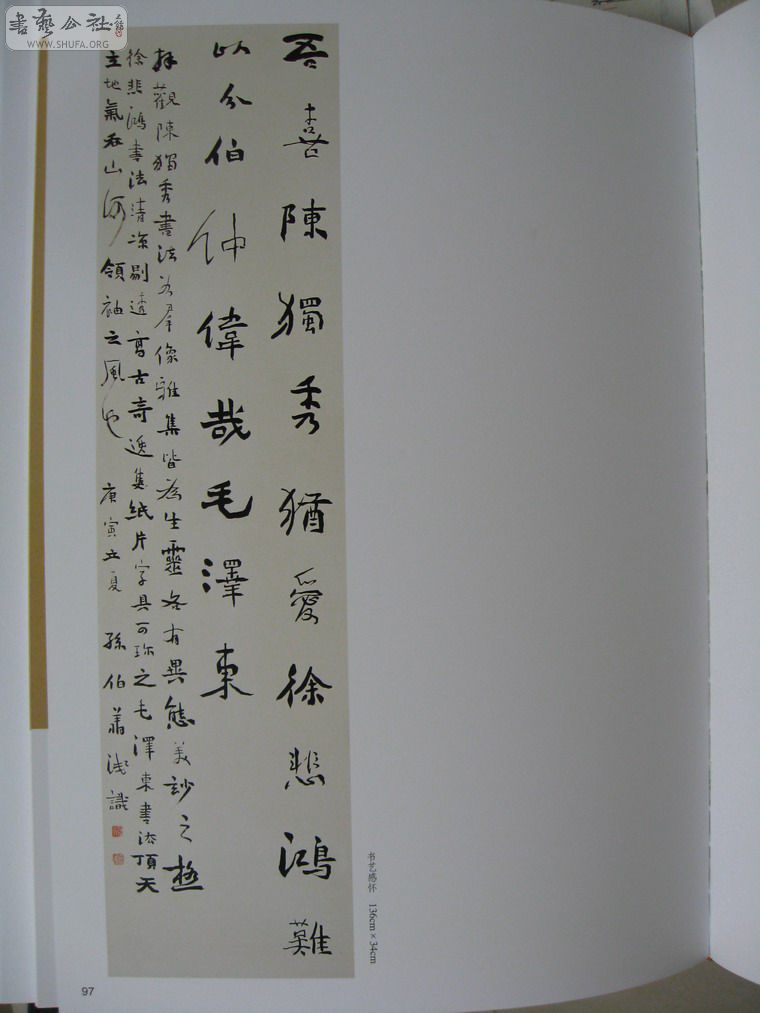 吾喜陳獨秀猶愛徐悲鴻難
以分伯仲偉哉毛澤東
拜觀陳獨秀書法若群像雅集皆為生靈各有異態美妙之極
徐悲鴻書法清涼剔透高古奇逸隻紙片字具可珍之毛澤東書法頂天
立地氣吞山河領袖之風也 庚寅立夏 孫伯蕭淺識
书艺感怀 136cm×34cm
97
書藝公社
WWW.SHUFA.ORG